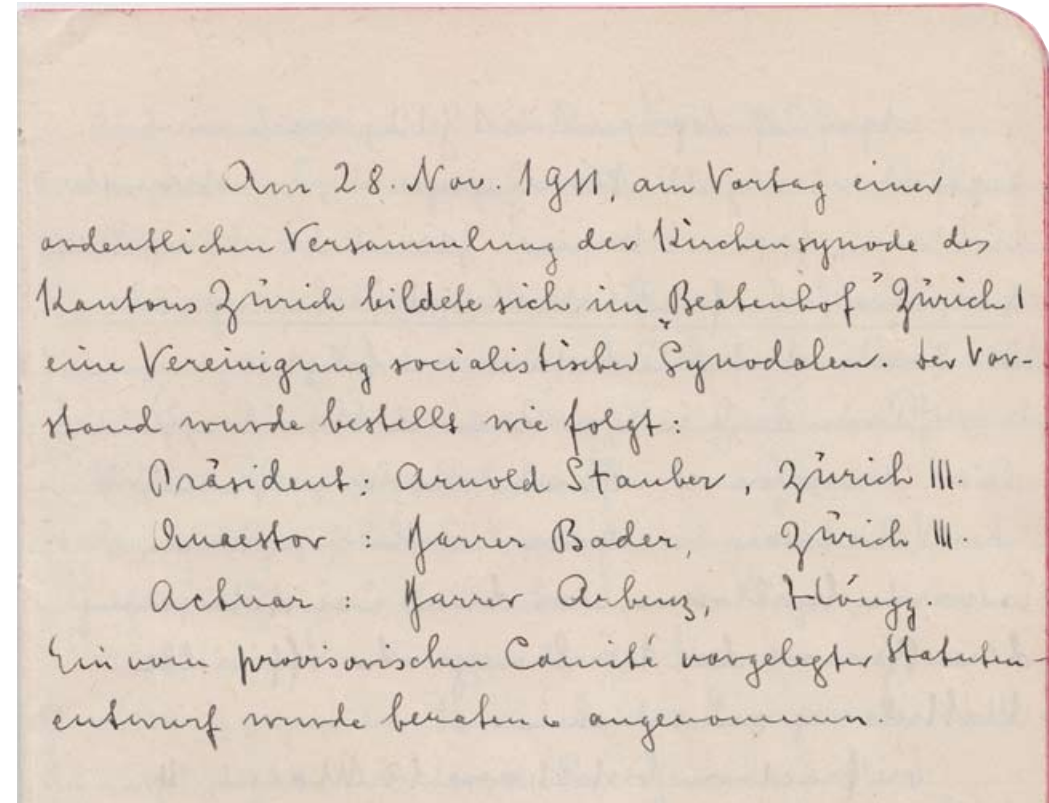 Am 28. Nov. 1911, am Vortag einer
ordentlichen Versammlung der Kirchensynode des
Kantons Zürich bildete sich im „Beatenhof” Zürich 1
eine Vereinigung socialistischer Synodalen. Der Vor-
stand wurde bestellt wie folgt:
Präsident: Arnold Stauber, Zürich III.
Quaestor: Pfarrer Bader, Zürich III
Actuar: Pfarrer Arbenz, Höngg.
Ein vom provisorischen Comité vorgelegter Statuten-
entwurf wurde beraten u angenommen.